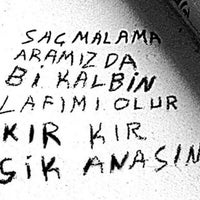 SAÇMALAMA
ARAMIZDA
Bİ KALBİN
LAFIMI OLUR
KIR KIR
SİK ANASIN